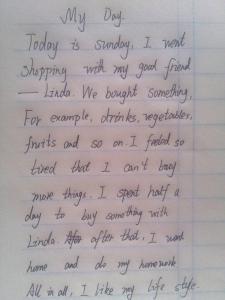 My Day.
Today is sunday, I went
shopping with my good friend
— Linda. We bought something,
For example, drinks, vegetables,
fruits and so on. I so
tired that I can't buy
more things. I spent half a
day to buy something with
Linda. after that, I want
home and do my homework
All in all, I like my life style.